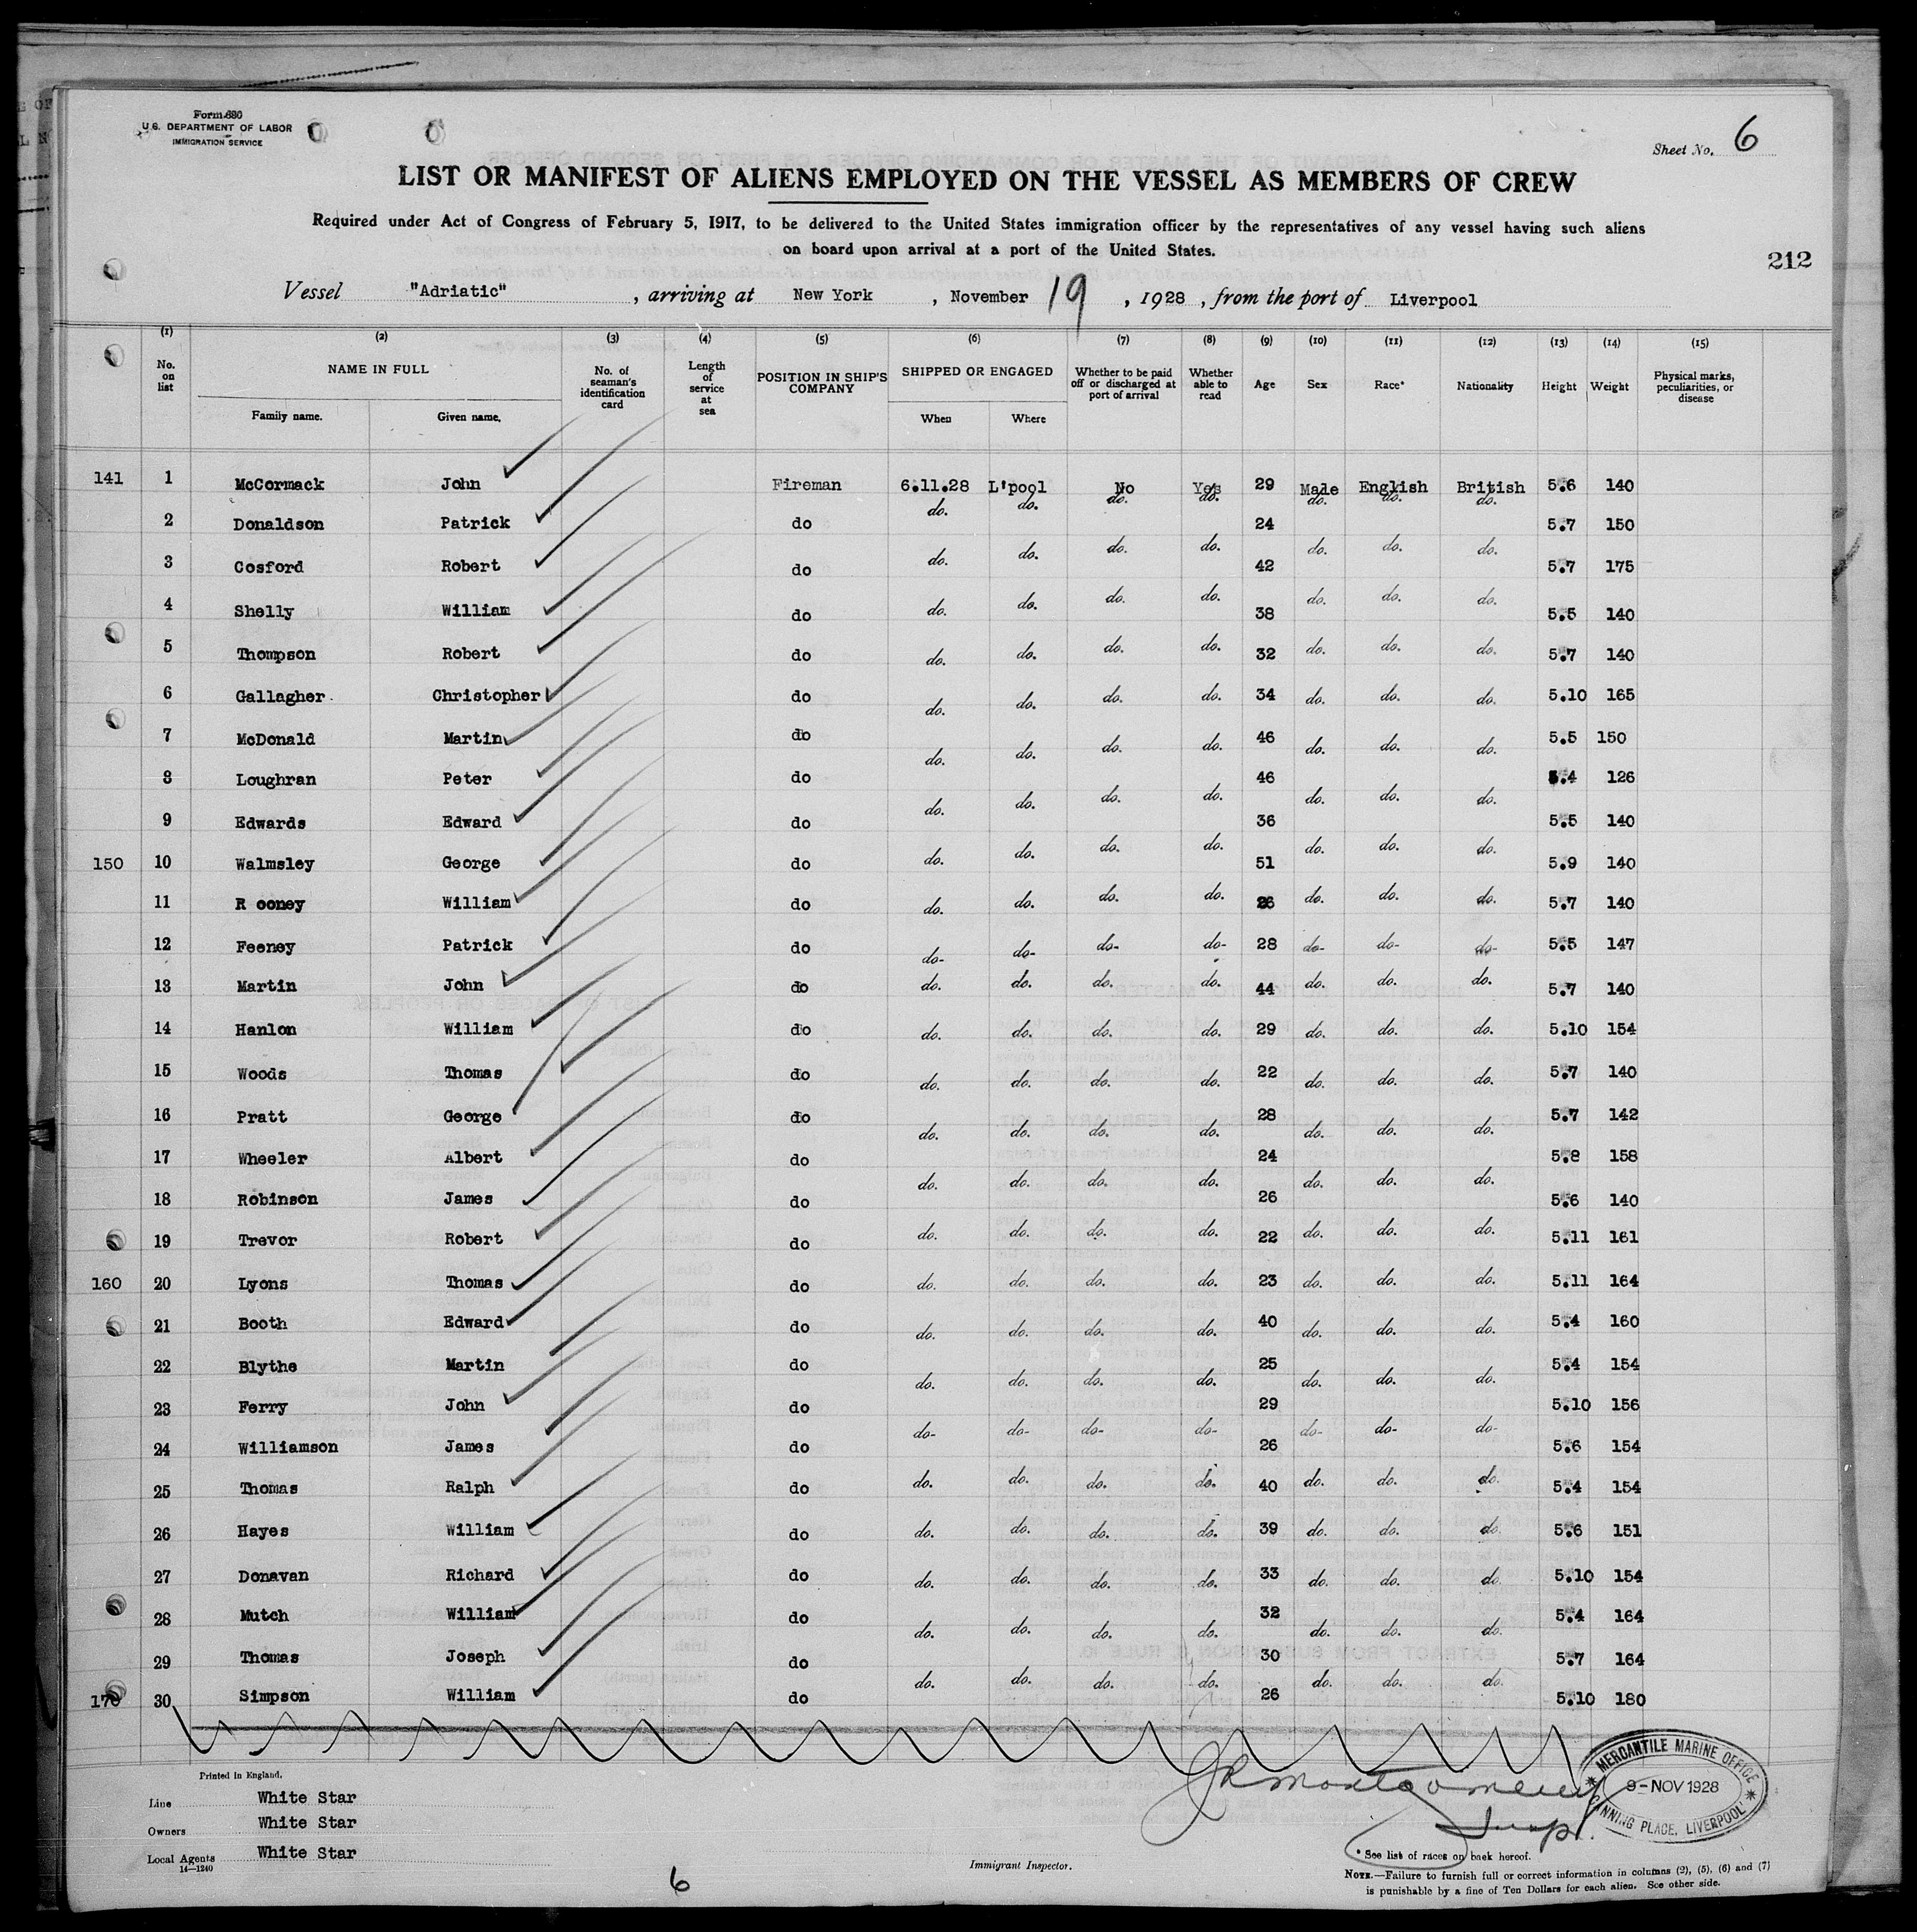 Form 680
U.S. DEPARTMENT OF LABOR
IMMIGRATION SERVICE
Sheet No. 6
LIST OR MANIFEST OF ALIENS EMPLOYED ON THE VESSEL AS MEMBERS OF CREW
Required under Act of Congress of February 5, 1917, to be delivered to the United States immigration officer by the representatives of any vessel having such aliens
on board upon arrival at a port of the United States.
212
Vessel "Adriatic", arriving at New York, November 19, 1928, from the port of Liverpool
(1) (2) (3) (4) (5) (6) (7) (8) (9) (10) (11) (12) (13) (14) (15)
No. on list NAME IN FULL Family name. Given name. No. of seaman's identification card Length of service at sea POSITION IN SHIP'S COMPANY SHIPPED OR ENGAGED When Where Whether to be paid off or discharged at port of arrival Whether able to read Age Sex Race* Nationality Height Weight Physical marks, peculiarities, or disease
141 1 McCormack John Fireman 6.11.28 L'pool No Yes 29 Male English British 5.6 140
2 Donaldson Patrick do do. do. do. do. 24 do. do. do. 5.7 150
3 Cosford Robert do do. do. do. do. 42 do. do. do. 5.7 175
4 Shelly William do do. do. do. do. 38 do. do. do. 5.5 140
5 Thompson Robert do do. do. do. do. 32 do. do. do. 5.7 140
6 Gallagher. Christopher do do. do. do. do. 34 do. do. do. 5.10 165
7 McDonald Martin do do. do. do. do. 46 do. do. do. 5.5 150
8 Loughran Peter do do. do. do. do. 46 do. do. do. 5.4 126
9 Edwards Edward do do. do. do. do. 36 do. do. do. 5.5 140
150 10 Walmsley George do do. do. do. do. 51 do. do. do. 5.9 140
11 R ooney William do do. do. do. do. 26 do. do. do. 5.7 140
12 Feeney Patrick do do- do- do- do- 28 do- do- do- 5.5 147
13 Martin John do do. do. do. do. 44 do. do. do. 5.7 140
14 Hanlon William do do. do. do. do. 29 do. do. do. 5.10 154
15 Woods Thomas do do. do. do. do. 22 do. do. do. 5.7 140
16 Pratt George do do. do. do. do. 28 do. do. do. 5.7 142
17 Wheeler Albert do do. do. do. do. 24 do. do. do. 5.8 158
18 Robinson James do do. do. do. do. 26 do. do. do. 5.6 140
19 Trevor Robert do do. do. do. do. 22 do. do. do. 5.11 161
160 20 Lyons Thomas do do. do. do. do. 23 do. do. do. 5.11 164
21 Booth Edward do do. do. do. do. 40 do. do. do. 5.4 160
22 Blythe Martin do do. do. do. do. 25 do. do. do. 5.4 154
23 Ferry John do do- do- do- do- 29 do- do- do- 5.10 156
24 Williamson James do 26 5.6 154
25 Thomas Ralph do do. do. do. do. 40 do. do. do. 5.4 154
26 Hayes William do do. do. do. do. 39 do. do. do. 5.6 151
27 Donavan Richard do do. do. do. do. 33 do. do. do. 5.10 154
28 Mutch William do do. do. do. do. 32 do. do. do. 5.4 164
29 Thomas Joseph do do. do. do. do. 30 do. do. do. 5.7 164
170 30 Simpson William do 26 5.10 180
Printed in England.
Line White Star
Owners White Star
Local Agents White Star
14—1240
6
JR Montgomery
Insp.
Immigrant Inspector.
MERCANTILE MARINE OFFICE
9-NOV 1928
NNING PLACE, LIVERPOOL
* See list of races on back hereof.
NOTE.—Failure to furnish full or correct information in columns (2), (5), (6) and (7)
is punishable by a fine of Ten Dollars for each alien. See other side.